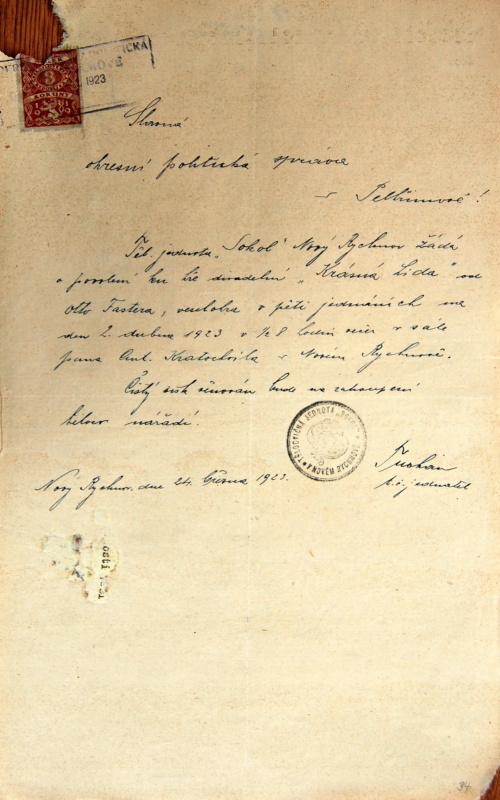 1923
3
Slavná
okresní politická správa
v Pelhřimově!
Těl. jednota „Sokol" Nový Rychnov žádá
o povolení ku hře divadelní „Krásná Lída" od
Otto Fastera, veselohra v pěti jednáních na
den 2. dubna 1923 v ½8 hodin večer v sále
pana Ant. Kratochvíla v Novém Rychnově.
Čistý zisk věnován bude na zakoupení
tělocv. nářadí.
TĚLOCVIČNÁ JEDNOTA „SOKOL"
V NOVÉM RYCHNOVĚ
Nový Rychnov, dne 24. března 1923.
t. č. jednatel
osti
34